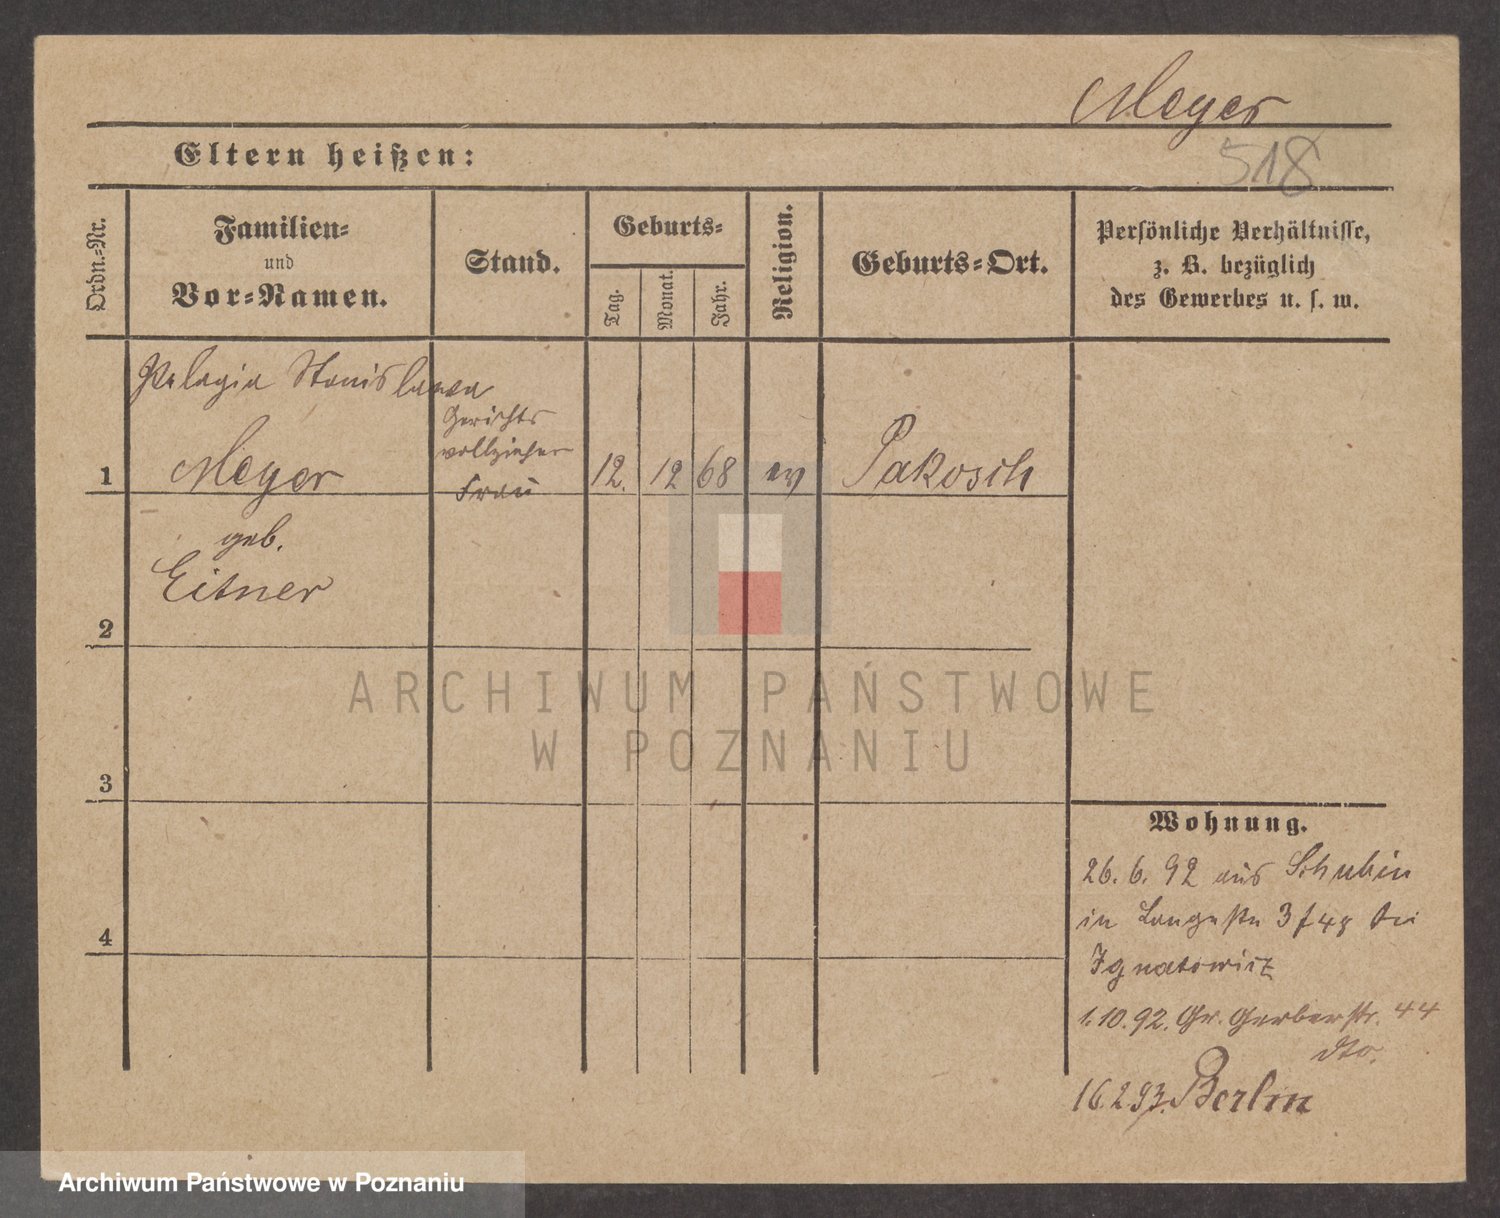 Meyer
Eltern heißen:
518
Ordn.-Nr.
Familien-
und
Vor-Namen.
Stand.
Geburts-
Tag.
Monat.
Jahr.
Religion.
Geburts-Ort.
Persönliche Verhältnisse,
z. B. bezüglich
des Gewerbes u. s. w.
Pelagia Stanislawa
Gerichts
vollzieher
1 Meyer Frau 12. 12 68 ev Pakosch
geb.
Eitner
2
ARCHIWUM PAŃSTWOWE
W POZNANIU
3
Wohnung.
26. 6. 92 aus Schubin
in Langestr 3 bei
4
Ignatowicz
1.10.92. Gr. Gerberstr. 44
dto.
16.2.93. Berlin
Archiwum Państwowe w Poznaniu